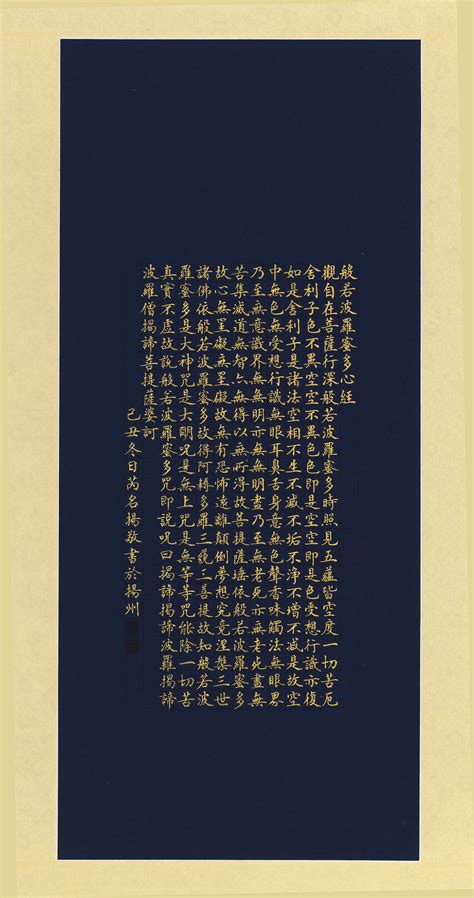 般若波羅蜜多心経
觀自在菩薩行深般若波羅蜜多時照見五蘊皆空度一切苦厄
舍利子色不異空空不異色色即是空空即是色受想行識亦復
如是舍利子是諸法空相不生不滅不垢不淨不增不減是故空
中無色無受想行識無眼耳鼻舌身意無色聲香味觸法無眼界
乃至無意識界無無明亦無無明盡乃至無老死亦無老死盡無
苦集滅道無智亦無得以無所得故菩提薩埵依般若波羅蜜多
故心無罣礙無罣礙故無有恐怖遠離顛倒夢想究竟涅槃三世
諸佛依般若波羅蜜多故得阿耨多羅三藐三菩提故知般若波
羅蜜多是大神咒是大明咒是無上咒是無等等咒能除一切苦
真實不虛故說般若波羅蜜多咒即說咒曰揭諦揭諦波羅揭諦
波羅僧揭諦菩提薩婆訶
己丑冬日芮名揚敬書於揚州